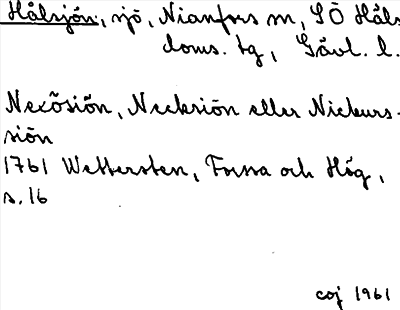 Hålsjön, sjö, Nianfors sn, SÖ Häls
doms. tg, Gävl. l.
Nexösiön, Neckersiön eller Nickurs-
siön
1761 Wettersten, Forssa och Hög,
s. 16
coj 1961